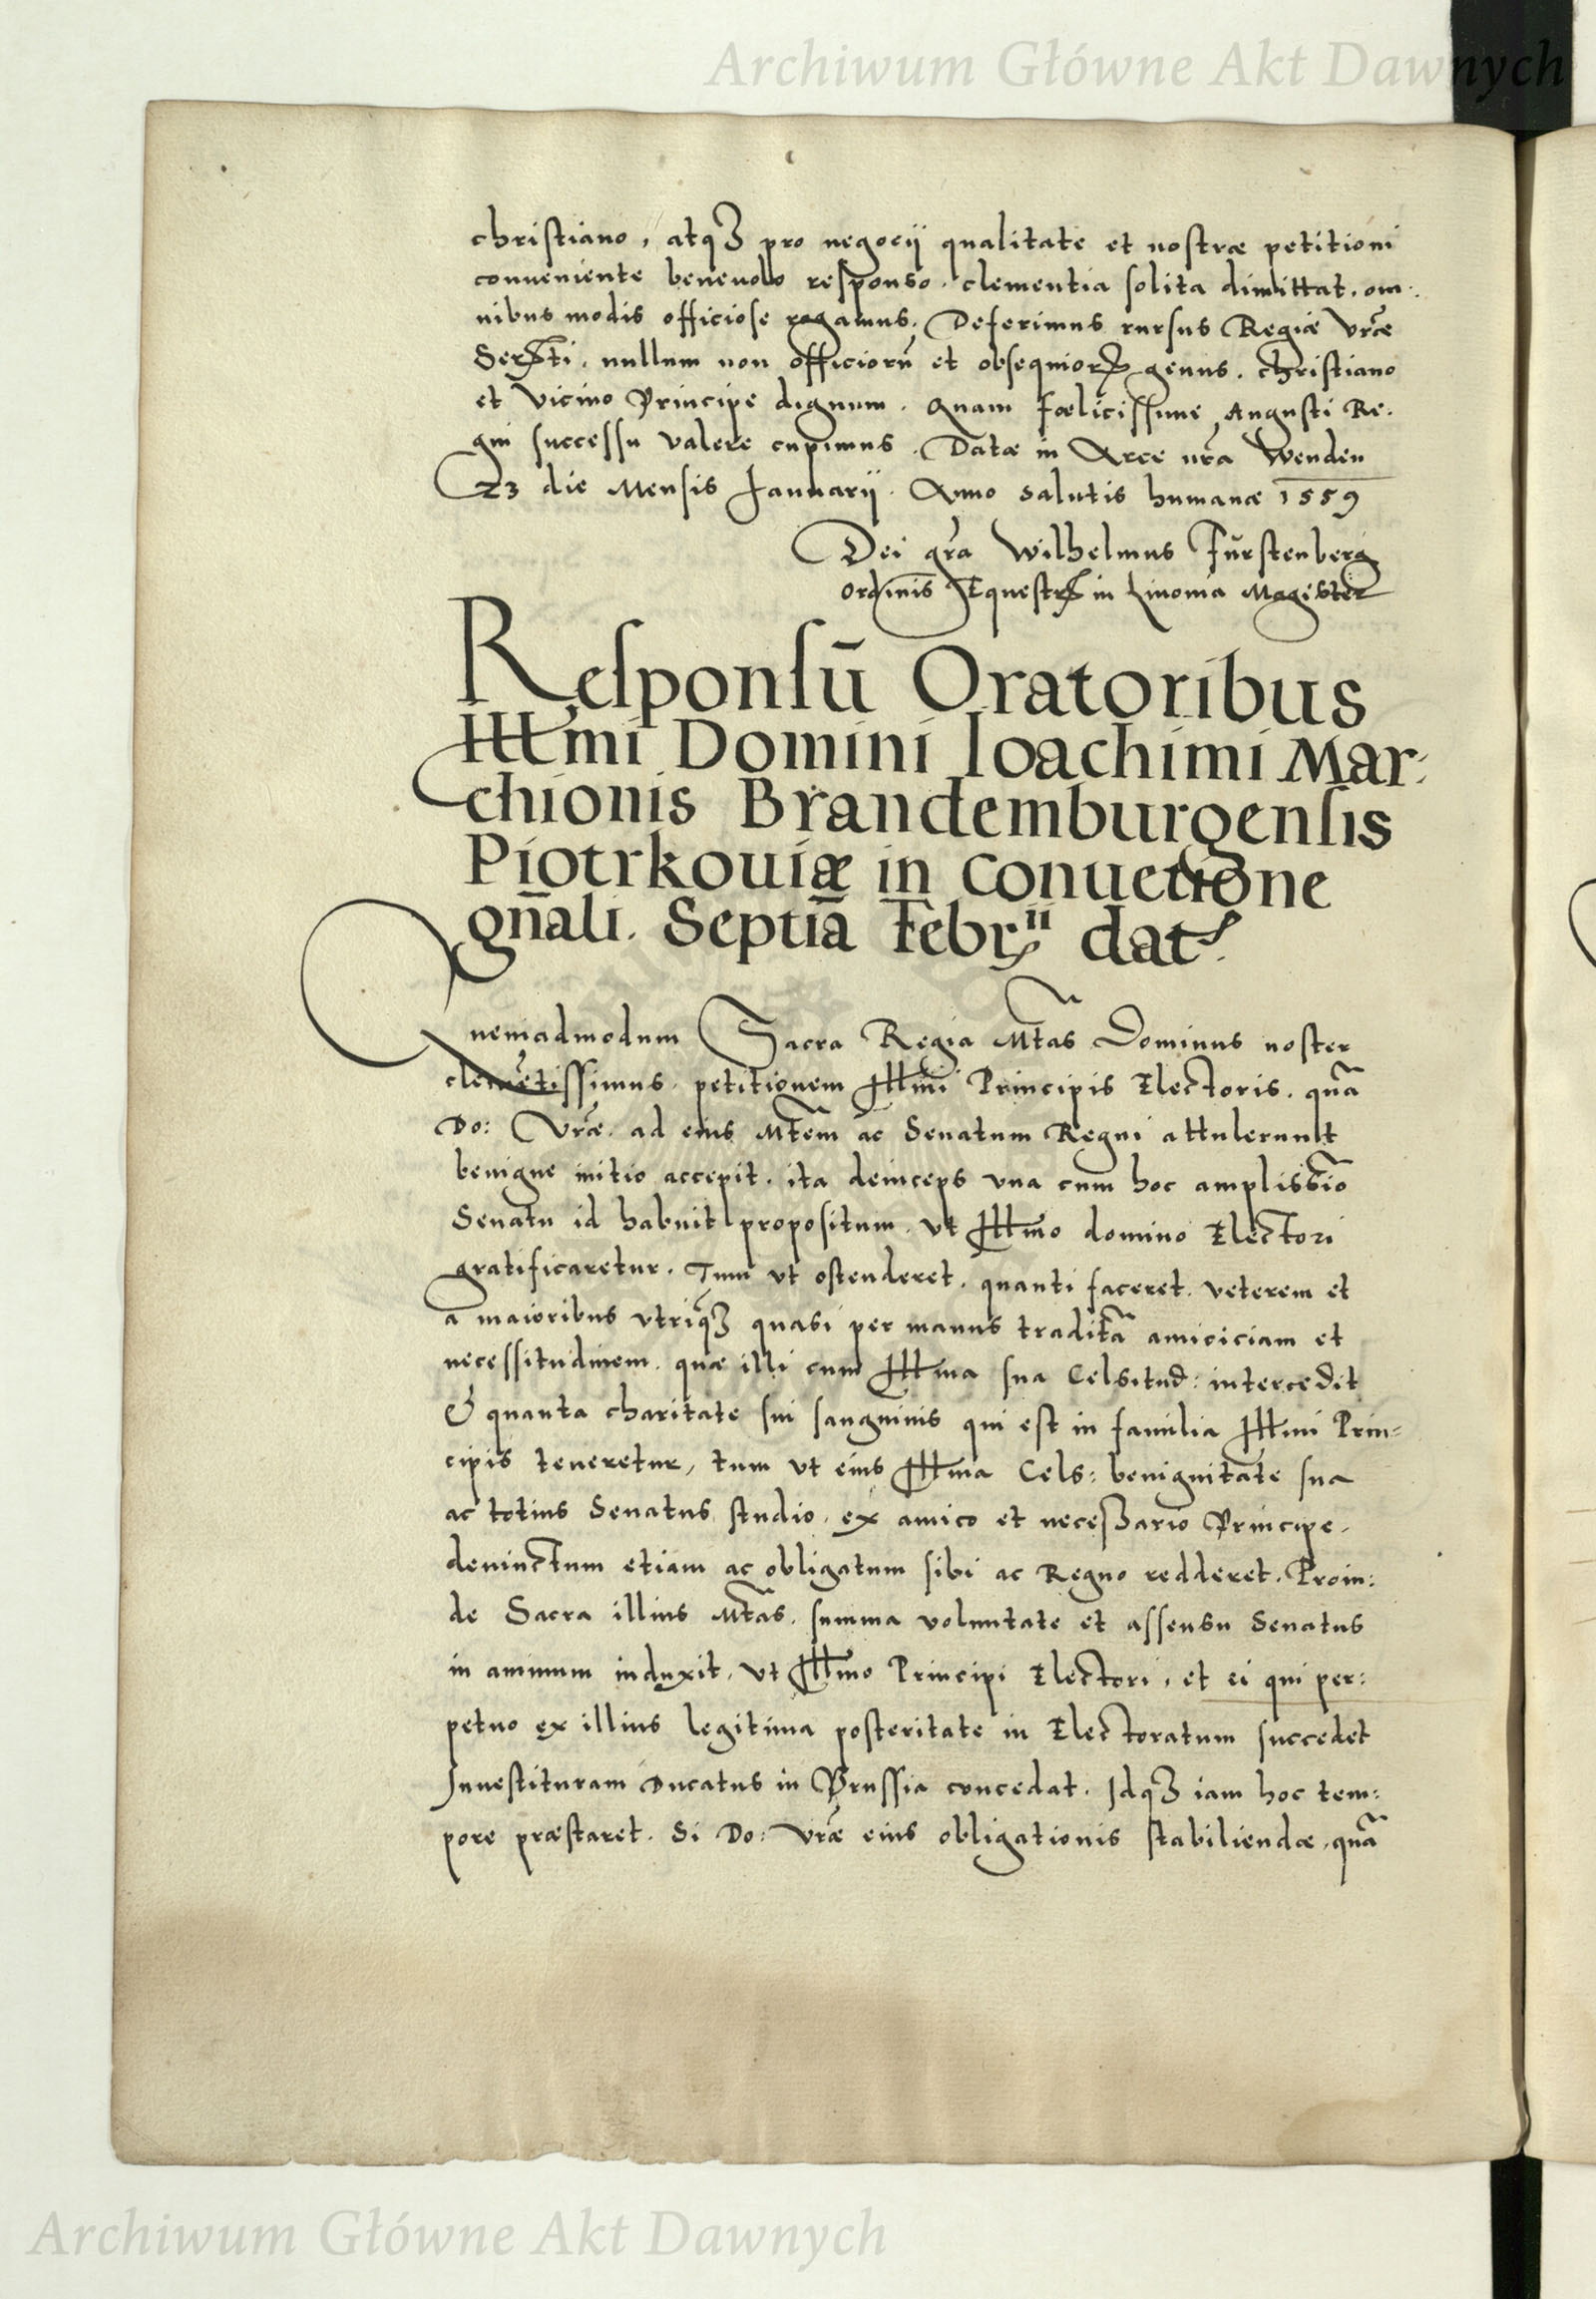 Archiwum Główne Akt Dawnych
christiano, atqȝ pro negocij qualitate et nostræ petitioni
conueniente beneuolo responso. clementia solita dimittat. om:
nibus modis officiose rogamus. Deferimus rursus Regiæ Vr̃æ
Serti. nullum non officiorũ et obsequiorꝝ genus. christiano
et Vicino Principe dignum. Quam fœlicissime Augusti Re.
gni successu valere cupimus. Datæ in Arce nr̃a Wenden
23 die Mensis Januarij. Anno salutis humanæ 1559
Dei gr̃a Wilhelmus Fürstenberg
Ordinis Equestris in Liuonia Magister
Responsū Oratoribus
Illmi Domini Ioachimi Mar:
chionis Brandemburgensis
Piotrkouiæ in conuētione
gn̄ali. Septīa Febrii dat.
Quemadmodum Sacra Regia Mt̃as Dominus noster
clemẽtissimus. petitionem Illm̃i Principis Electoris. quã
Do: Vr̃æ. ad eius Mt̃em ac Senatum Regni attulerunt
benigne initio accepit. ita deinceps vna cum hoc amplissĩo
Senatu id habuit propositum. vt Illm̃o domino Electori
gratificaretur. Tum vt ostenderet. quanti faceret. veterem et
a maioribus vtriqȝ quasi per manus traditã amiciciam et
necessitudinem. quæ illi cum Illma sua Celsitud: intercedit
& quanta charitate sui sanguinis qui est in familia Illmi Prin=
cipis teneretur, tum vt eius Illma Cels: benignitate sua
ac totius Senatus studio. ex amico et necessario Principe.
deuinctum etiam ac obligatum sibi ac Regno redderet. Proin:
de Sacra illius Mt̃as. summa voluntate et assensu Senatus
in animum induxit. vt Illmo Principi Electori, et ei qui per:
petuo ex illius legitima posteritate in Electoratum succedet
Inuestituram Ducatus in Prussia concedat. Idqȝ iam hoc tem:
pore præstaret. Si Do: Vr̃æ eius obligationis stabiliendæ. quã
Archiwum Główne Akt Dawnych